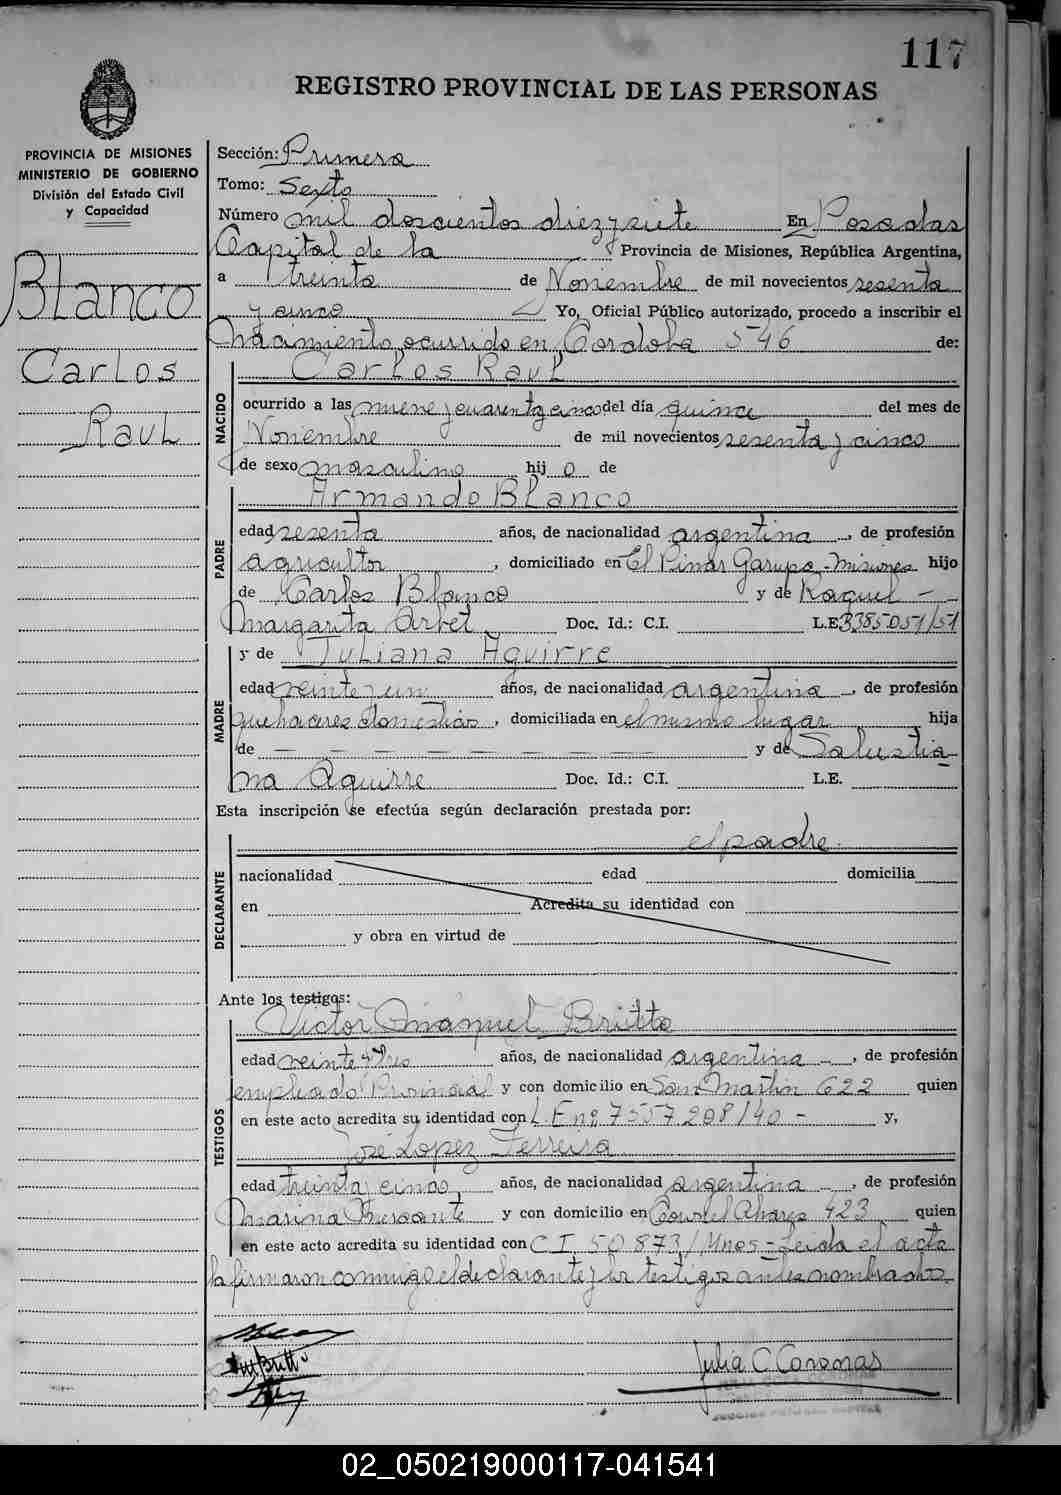 117
REGISTRO PROVINCIAL DE LAS PERSONAS
PROVINCIA DE MISIONES
MINISTERIO DE GOBIERNO
División del Estado Civil
y Capacidad
Blanco
Carlos
Raul
Sección: Primera
Tomo: Sexto
Número mil doscientos diez y siete En Posadas
Capital de la Provincia de Misiones, República Argentina,
a treinta de Noviembre de mil novecientos sesenta
y cinco Yo, Oficial Público autorizado, procedo a inscribir el
Nacimiento ocurrido en Cordoba 546 de:
NACIDO
Carlos Raul
ocurrido a las nueve y cuarenta y cinco del día quince del mes de
Noviembre de mil novecientos sesenta y cinco
de sexo masculino hij o de
PADRE
Armando Blanco
edad sesenta años, de nacionalidad argentina, de profesión
agricultor, domiciliado en El Pinar Garupa-Misiones hijo
de Carlos Blanco y de Raquel -
Margarita Arbet Doc. Id.: C.I. L.E. 3385051/51
MADRE
y de Juliana Aguirre
edad veinte y un años, de nacionalidad argentina -, de profesión
quehaceres domesticos, domiciliada en el mismo lugar hija
de — — — — — — — — y de Salustia-
na Aguirre Doc. Id.: C.I. L.E.
Esta inscripción se efectúa según declaración prestada por:
el padre.
DECLARANTE
nacionalidad edad domicilia
en Acredita su identidad con
y obra en virtud de
Ante los testigos:
TESTIGOS
Victor Manuel Britto
edad veinte y tres años, de nacionalidad argentina -, de profesión
empleado Provincial y con domicilio en San Martin 622 quien
en este acto acredita su identidad con L.E nº 7557.208/40 - y,
José Lopez Ferreira
edad treinta y cinco años, de nacionalidad argentina -, de profesión
Marina Mercante y con domicilio en Coronel Alvarez 423 quien
en este acto acredita su identidad con C.I. 50873/Mnes- Leida el acta
la firmaron conmigo el declarante y los testigos antes nombrados
Julia C. Coronas
02_050219000117-041541